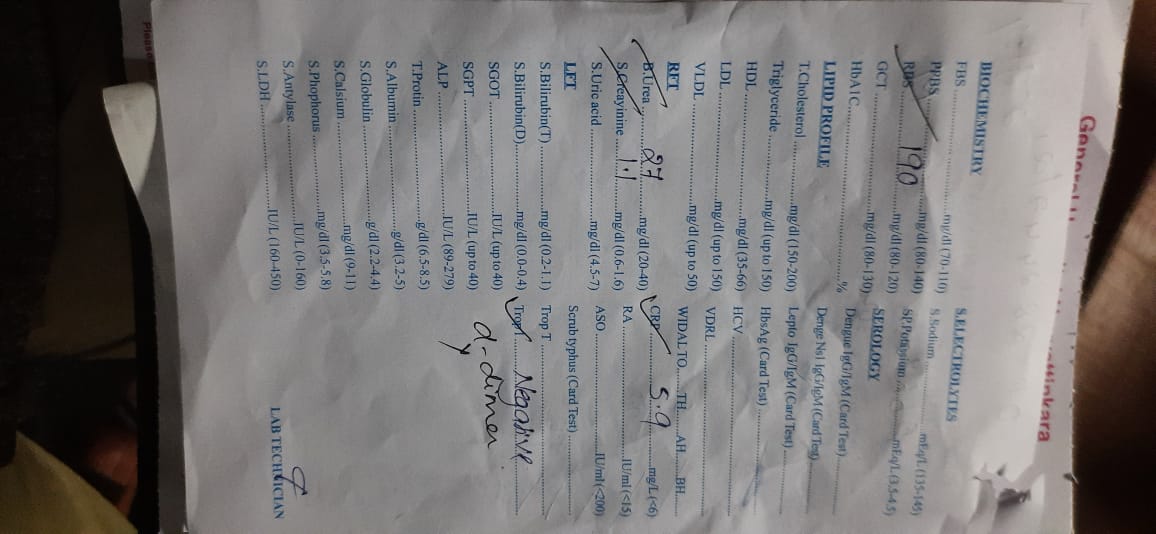 BIOCHEMISTRY
FBS ........ mg/dl (70-110)
PPBS ........ mg/dl (80-140)
RBS 190 mg/dl (80-120)
GCT ........ mg/dl (80-130)
HbA1C ........ %
LIPID PROFILE
T.Cholesterol ........ mg/dl (150-200)
Triglyceride ........ mg/dl (up to 150)
HDL ........ mg/dl (35-66)
LDL ........ mg/dl (up to 150)
VLDL ........ mg/dl (up to 50)
RFT
B.Urea 27 mg/dl (20-40)
S.Creayinine 1.1 mg/dl (0.6-1.6)
S.Uric acid ........ mg/dl (4.5-7)
LFT
S.Bilirubin(T) ........ mg/dl (0.2-1.1)
S.Bilirubin(D) ........ mg/dl (0.0-0.4)
SGOT ........ IU/L (up to 40)
SGPT ........ IU/L (up to 40)
ALP ........ IU/L (89-279)
T.Protin ........ g/dl (6.5-8.5)
S.Albumin ........ g/dl (3.2-5)
S.Globulin ........ g/dl (2.2-4.4)
S.Calsium ........ mg/dl (9-11)
S.Phophorus ........ mg/dl (3.5-5.8)
S.Amylase ........ IU/L (0-160)
S.LDH ........ IU/L (160-450)
S.ELECTROLYTES
S.Sodium ........ mEq/L (135-145)
........ mEq/L (3.5-4.5)
SEROLOGY
Dengue IgG/IgM (Card Test) ........
Denge Ns1 IgG/IgM (Card Test) ........
Lepto IgG/IgM (Card Test) ........
HbsAg (Card Test) ........
HCV ........
VDRL ........
WIDAL TO ........ TH ........ AH ........ BH ........
CRP 5.9 mg/L (<6)
RA ........ IU/ml (<15)
ASO ........ IU/ml (<200)
Scrub typhus (Card Test) ........
Trop T ........
TropI Negative
d-dimer
LAB TECHNICIAN
Please